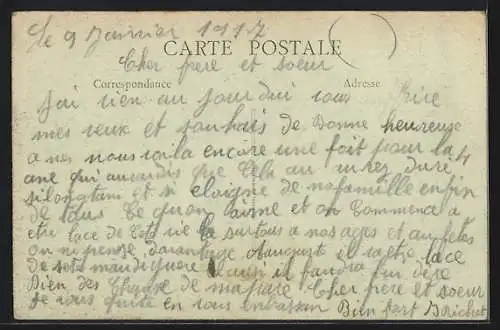 Le 9 Janvier 1917
CARTE POSTALE
Cher frere et soeur
Correspondance Adresse
Jai vien au jourdui vous Ecrire
mes veux et souhais de Bonne heureuse
a ne nous voila encore une foit pour la 4
ane qui que Cela au dure
si lontam et si eloigne de ma famille enfin
de tous Ce quon aime et on Commence a
etre lace de Cete vie la surtout a nos ages et au fetes
on ni pense davantage Auguste il va etre lace
de sete maudi guere ausi il faudra lui dire
Bien des Chause de ma part Cher frere et soeur
Je vous quite en vous enbrasan Bien fort